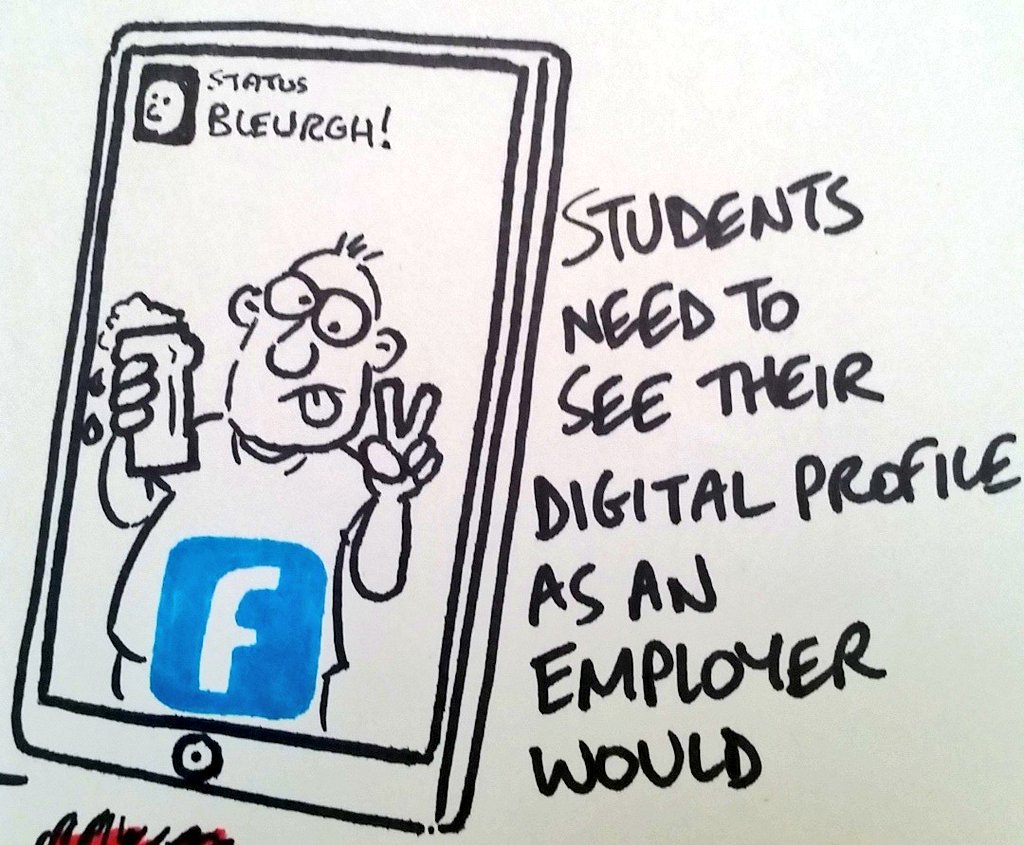 STATUS
BLEURGH!
STUDENTS
NEED TO
SEE THEIR
DIGITAL PROFILE
AS AN
EMPLOYER
WOULD
f